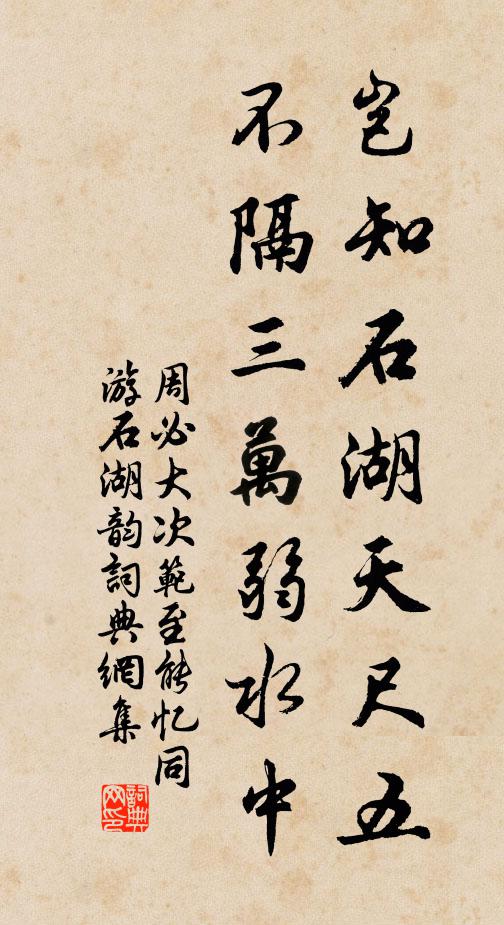 岂知石湖天尺五
不隔三萬弱水中
周必大次範至能忆同
游石湖韵詞典網集
詞典网印